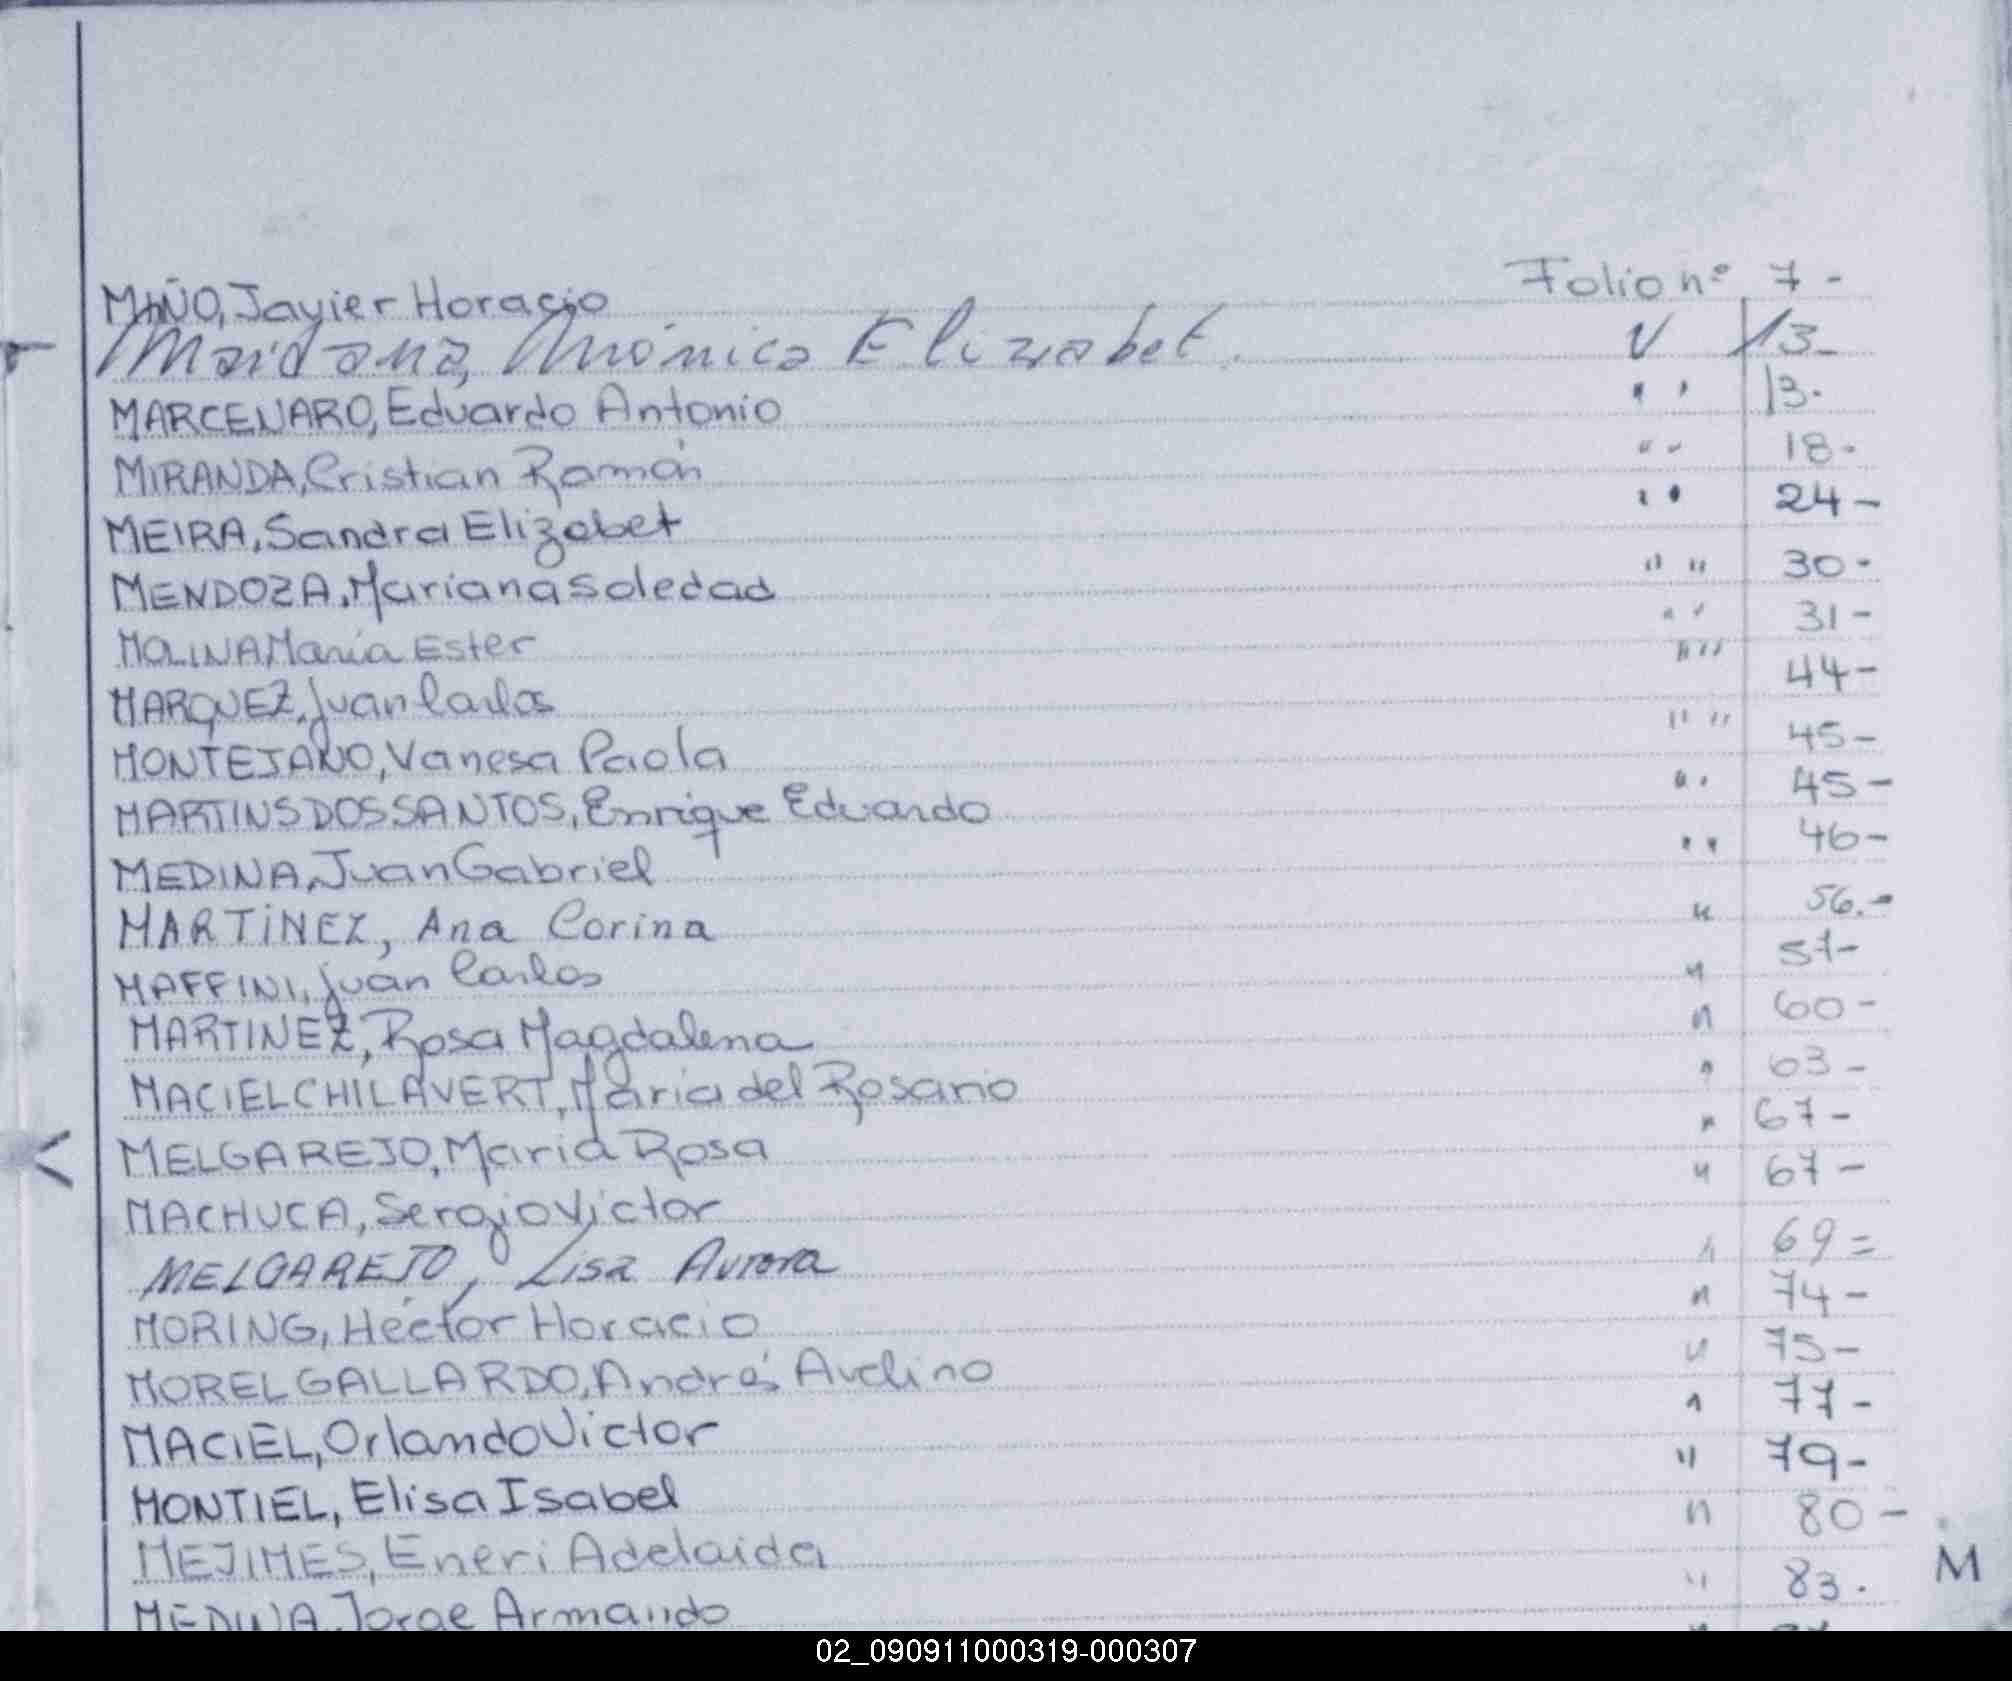 MIÑO, Javier Horacio Folio nº 7 -
Maidana, Mónica Elizabet. " 13 -
MARCENARO, Eduardo Antonio " " 13 -
MIRANDA, Cristian Ramón " " 18 -
MEIRA, Sandra Elizabet " " 24 -
MENDOZA, Mariana Soledad " " 30 -
MOLINA, María Ester " " 31 -
MARQUEZ, Juan Carlos " " 44 -
MONTEJANO, Vanesa Paola " " 45 -
MARTINS DOS SANTOS, Enrique Eduardo " " 45 -
MEDINA, Juan Gabriel " " 46 -
MARTINEZ, Ana Corina " 56.-
MAFFINI, Juan Carlos " 57 -
MARTINEZ, Rosa Magdalena " 60 -
MACIEL CHILAVERT, María del Rosario " 63 -
MELGAREJO, María Rosa " 67 -
MACHUCA, Sergio Victor " 67 -
MELGAREJO, Lisa Aurora " 69 =
MORING, Héctor Horacio " 74 -
MOREL GALLARDO, Andrés Avelino " 75 -
MACIEL, Orlando Victor " 77 -
MONTIEL, Elisa Isabel " 79 -
MEJIMES, Eneri Adelaida " 80 -
MEDINA, Jorge Armando " 83 -
M
02_090911000319-000307